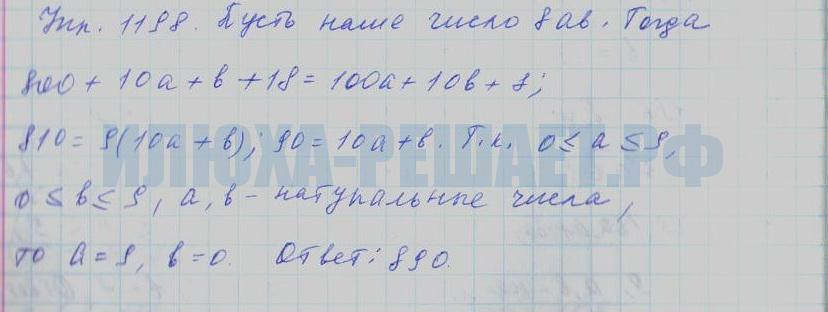 Упр. 1198. Пусть наше число 8ab. Тогда
800 + 10a + b + 18 = 100a + 10b + 8;
810 = 9(10a + b); 90 = 10a + b. Т.к. 0 ≤ a ≤ 9,
0 ≤ b ≤ 9, a, b - натуральные числа,
то a = 9, b = 0. Ответ: 890.
ИЛЮХА-РЕШАЕТ.РФ